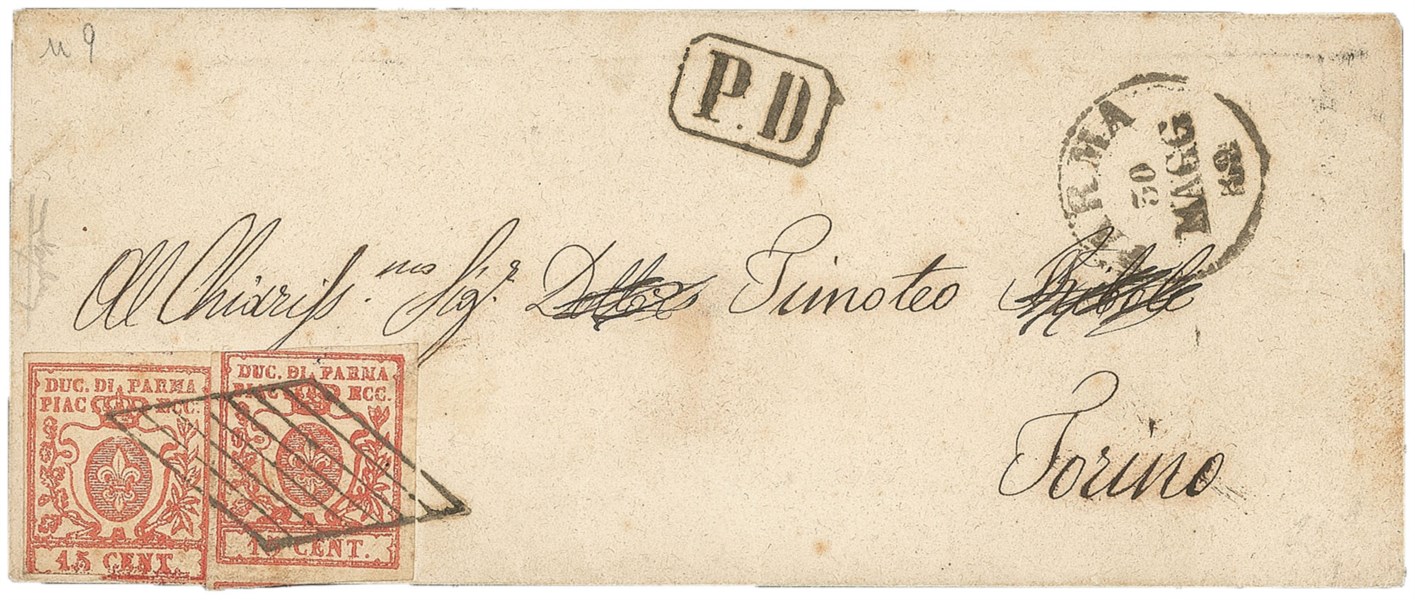 n 9
P.D
PARMA
30
MAGG
59
Al Chiariss.mo Sig.r Dottore Timoteo Riboli
Torino
DUC. DI PARMA
PIAC ECC.
15 CENT.
DUC. DI PARMA
PIAC ECC.
15 CENT.